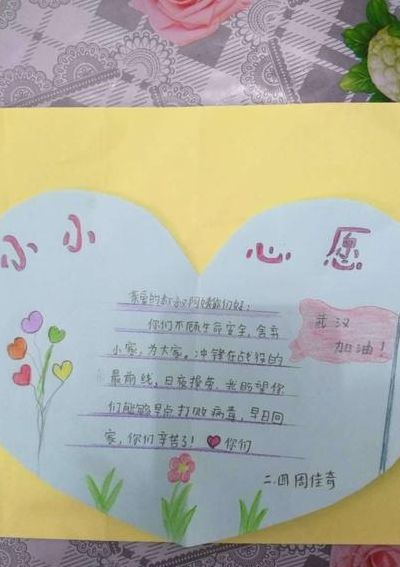 小小 心愿
亲爱的叔叔阿姨你们好：
你们不顾生命安全，舍弃
小家，为大家。冲锋在战役的
最前线，日夜操劳。我盼望你
们能够早点打败病毒，早日回
家，你们辛苦了！❤你们
武汉
加油！
二.四 周佳奇